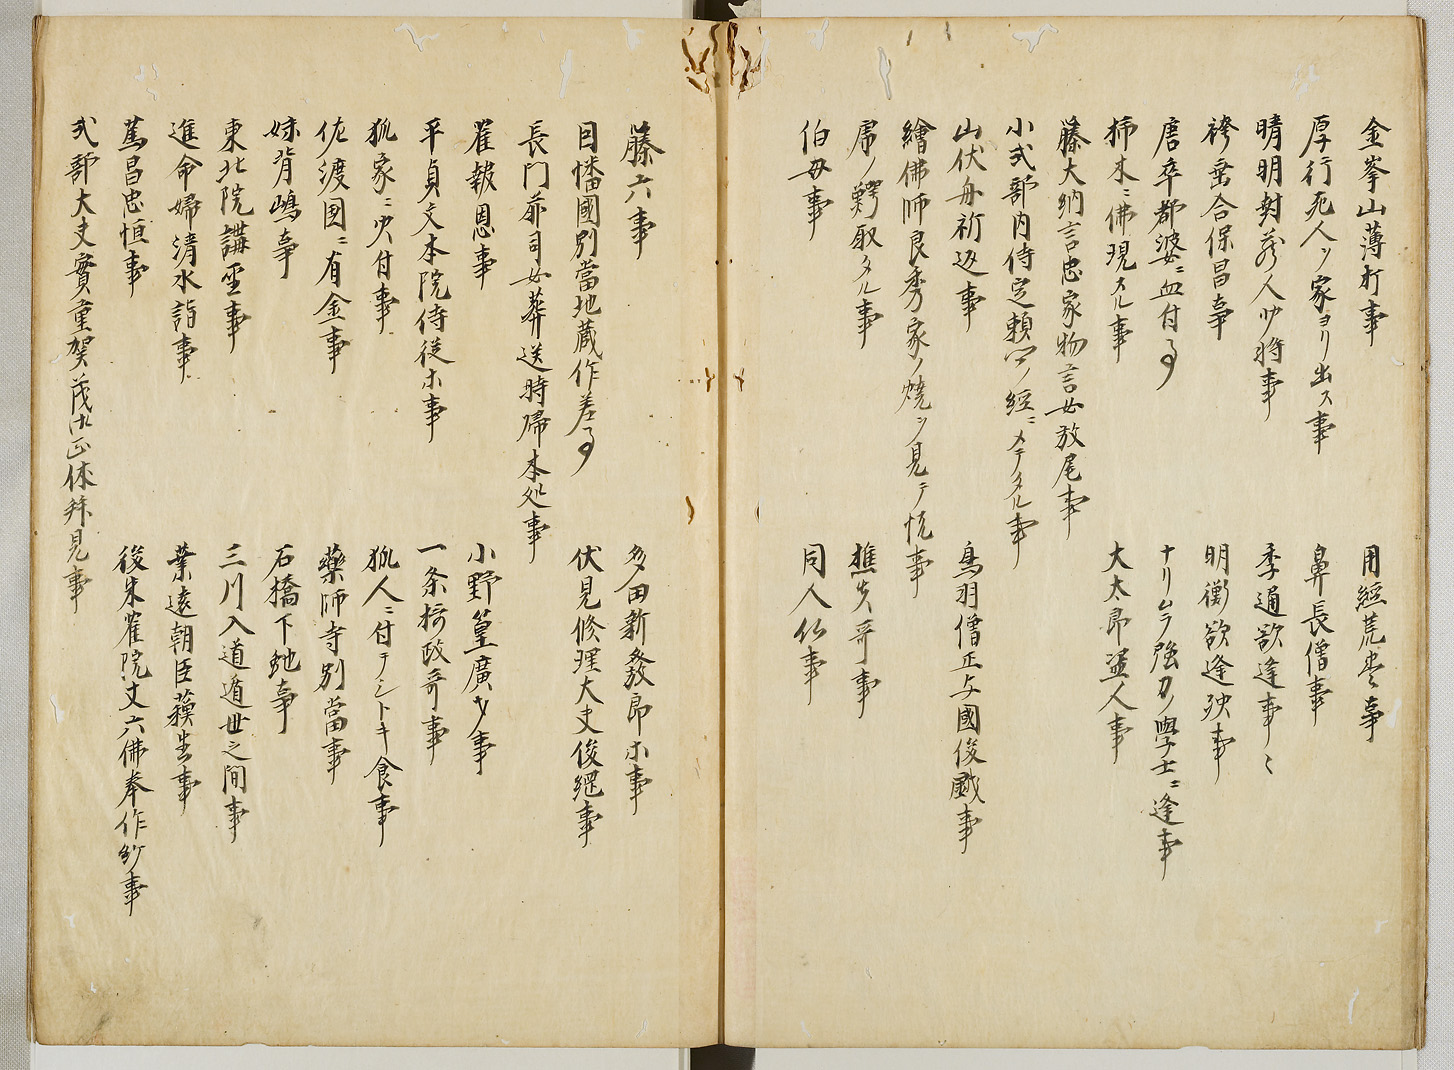 金峯山薄打事
用經荒巻事
厚行死人ヲ家ヨリ出ス事
鼻長僧事
晴明封蔵人少将事
季通欲逢事〻
袴垂合保昌事
明衡欲逢殃事
唐卒都婆ニ血付事
ナリムラ強力ノ學士ニ逢事
柿木ニ佛現スル事
大太郎盗人事
藤大納言忠家物言女放屁事
小式部内侍定頼卿ノ經ニメテタル事
山伏舟祈返事
鳥羽僧正与國俊戯事
繪佛師良秀家ノ焼ヲ見テ悦事
虎ノ鰐取タル事
樵夫哥事
伯母事
同人仏事
藤六事
多田新發郎ホ事
因幡國別當地蔵作差事
伏見修理大夫俊綱事
長門前司女葬送時帰本処事
雀報恩事
小野篁廣才事
平貞文本院侍従ホ事
一条摂政哥事
狐家ニ火付事
狐人ニ付テシトキ食事
佐渡国ニ有金事
藥師寺別當事
妹背嶋事
石橋下虵事
東北院講聖事
三川入道遁世之間事
進命婦清水詣事
業遠朝臣蘓生事
篤昌忠恒事
後朱雀院丈六佛奉作給事
式部大夫實重賀茂御正体拝見事